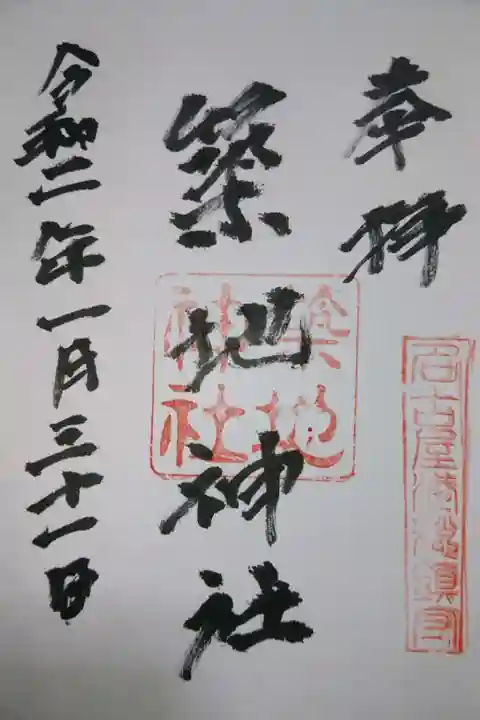 奉拝
名古屋港鎮守
築地神社
築地
神社
令和二年一月三十一日